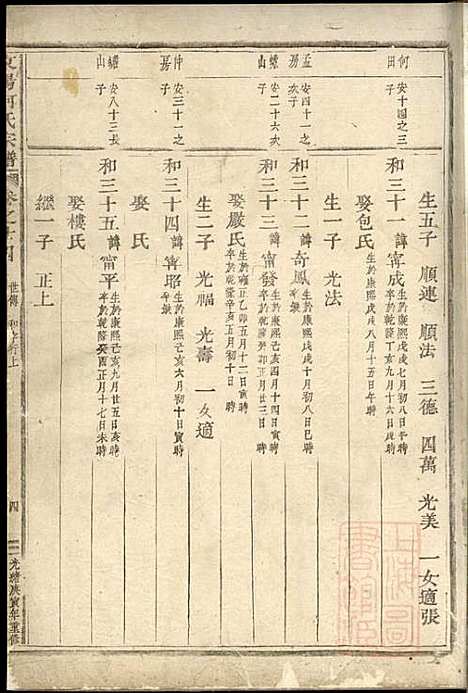 何田
安十四之三子
孟房
安四十一之次子
螺山
安二十六次子
仲房
安三十一之子
螺山
安八十三長子
生五子 順連 順法 三德 四萬 光美 一女適張
和三十一 諱甯成 生於康熙戊戌七月初八日子時 卒於乾隆辛亥九月十六日戌時
娶包氏 生於康熙戊戌八月十五日午時
生一子 光法
和三十二 諱奇鳳 生於康熙戊戌十月初八日巳時
和三十三 諱甯發 生於康熙 卒於乾隆癸卯正月廿三日時
娶嚴氏 生於雍正乙卯五月十二日寅時 卒於乾隆辛亥五月初十日時
生二子 光福 光壽 一女適
和三十四 諱甯昭 生於康熙己亥六月初十日寅時
娶 氏
和三十五 諱甯平 生於康熙己亥九月廿五日亥時 卒於乾隆癸酉正月十七日未時
娶樓氏
繼一子 正上
何氏宗譜 卷之十四 世傳 和字行上 四 光緒庚寅年重修
上海圖書館藏